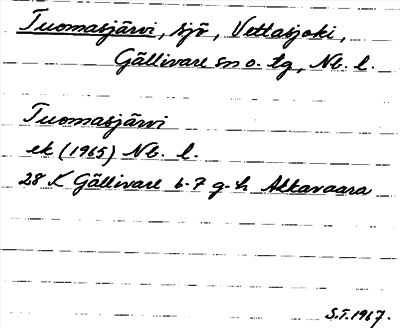 Tuomasjärvi, sjö, Vettasjoki,
Gällivare sn o. tg, Nb. l.
Tuomasjärvi
ek (1965) Nb. l.
28 K Gällivare 6-7 g-h Alkavaara
S.T. 1967.